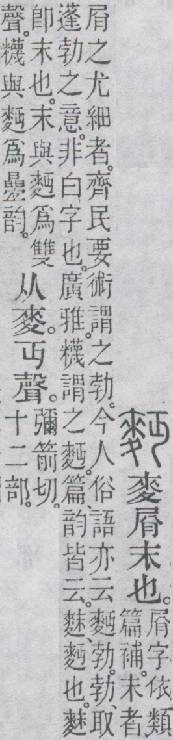 麪 麥屑末也。屑字依類
篇補。末者、
屑之尤細者。齊民要術謂之勃。今人俗語亦云麪勃。勃、取
蓬勃之意。非白字也。廣雅。䊳謂之麪。篇、韵皆云。䴲、麪也。䴲
卽末也。末與麪爲雙
聲。䊳與麪爲疊韵。
从麥。丏聲。彌箭切。
十二部。